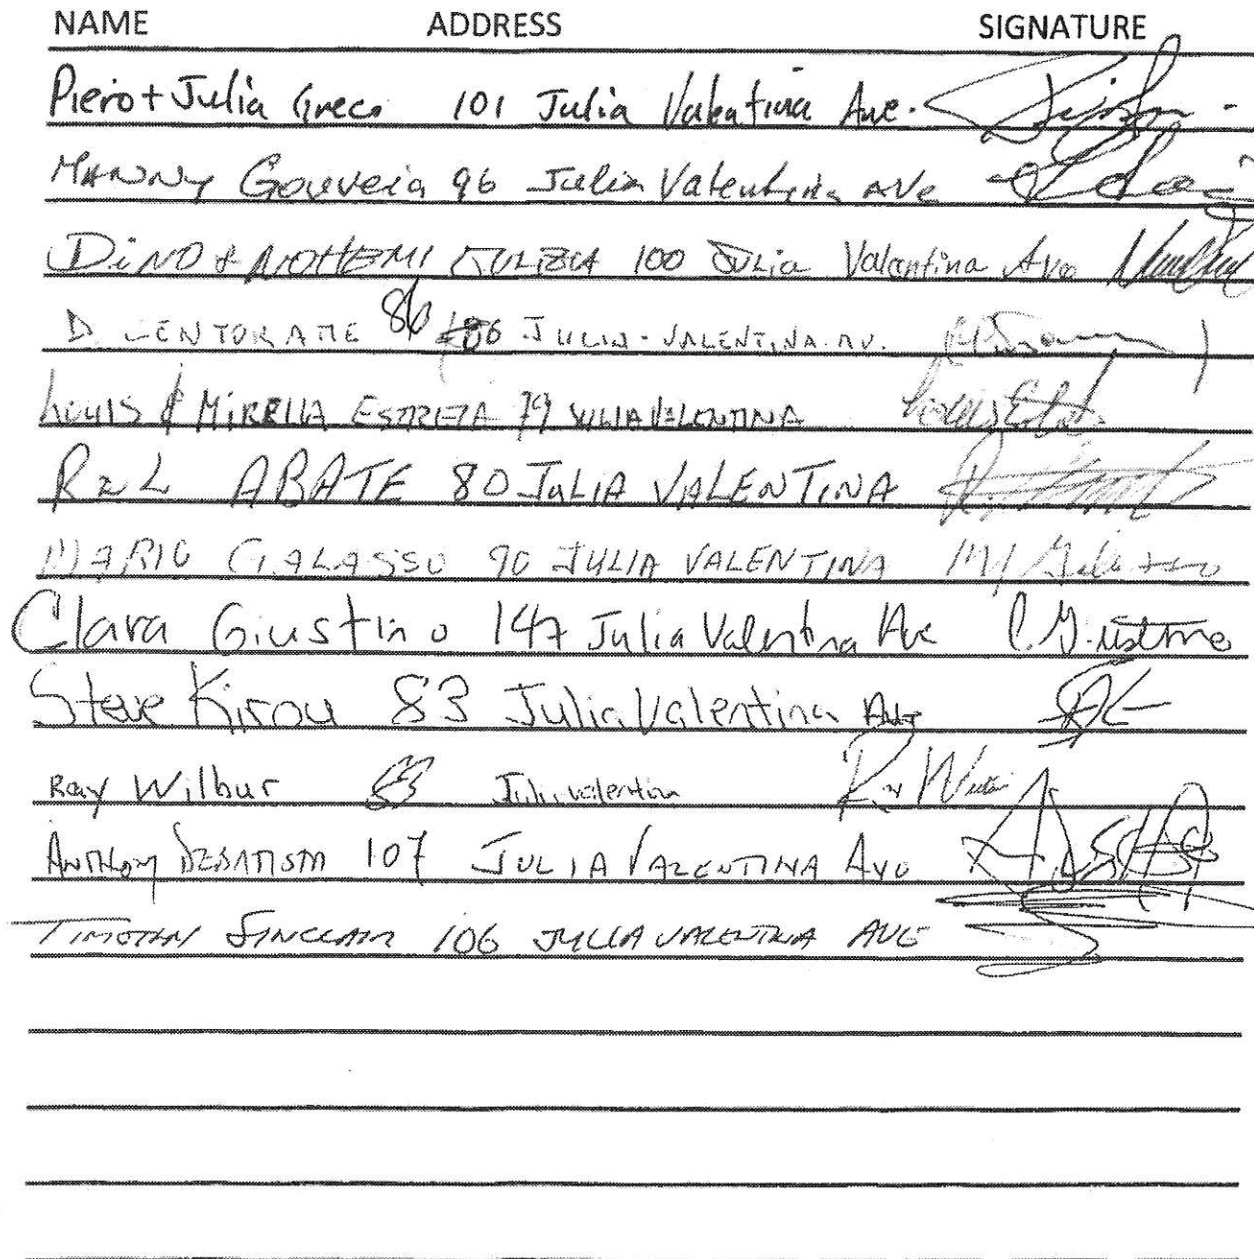 NAME ADDRESS SIGNATURE
Piero + Julia Greco 101 Julia Valentina Ave.
MANNY Gouveia 96 Julia Valentina AVe
DiNO & NOHEMI 100 JULia Valentina Ave
D. 86 JULIA-VALENTINA AV.
LOUIS & MIRELLA ESTRELA 79 JULIA VALENTINA
R & L ABATE 80 JULIA VALENTINA
MARIO GALASSO 90 JULIA VALENTINA M Galasso
Clara Giustino 147 Julia Valentina Ave C. Giustino
Steve Kirou 83 Julia Valentina Ave
Ray Wilbur Julia valentina
ANTHONY 107 JULIA VALENTINA AVE
TIMOTHY SINCLAIR 106 JULIA VALENTINA AVE